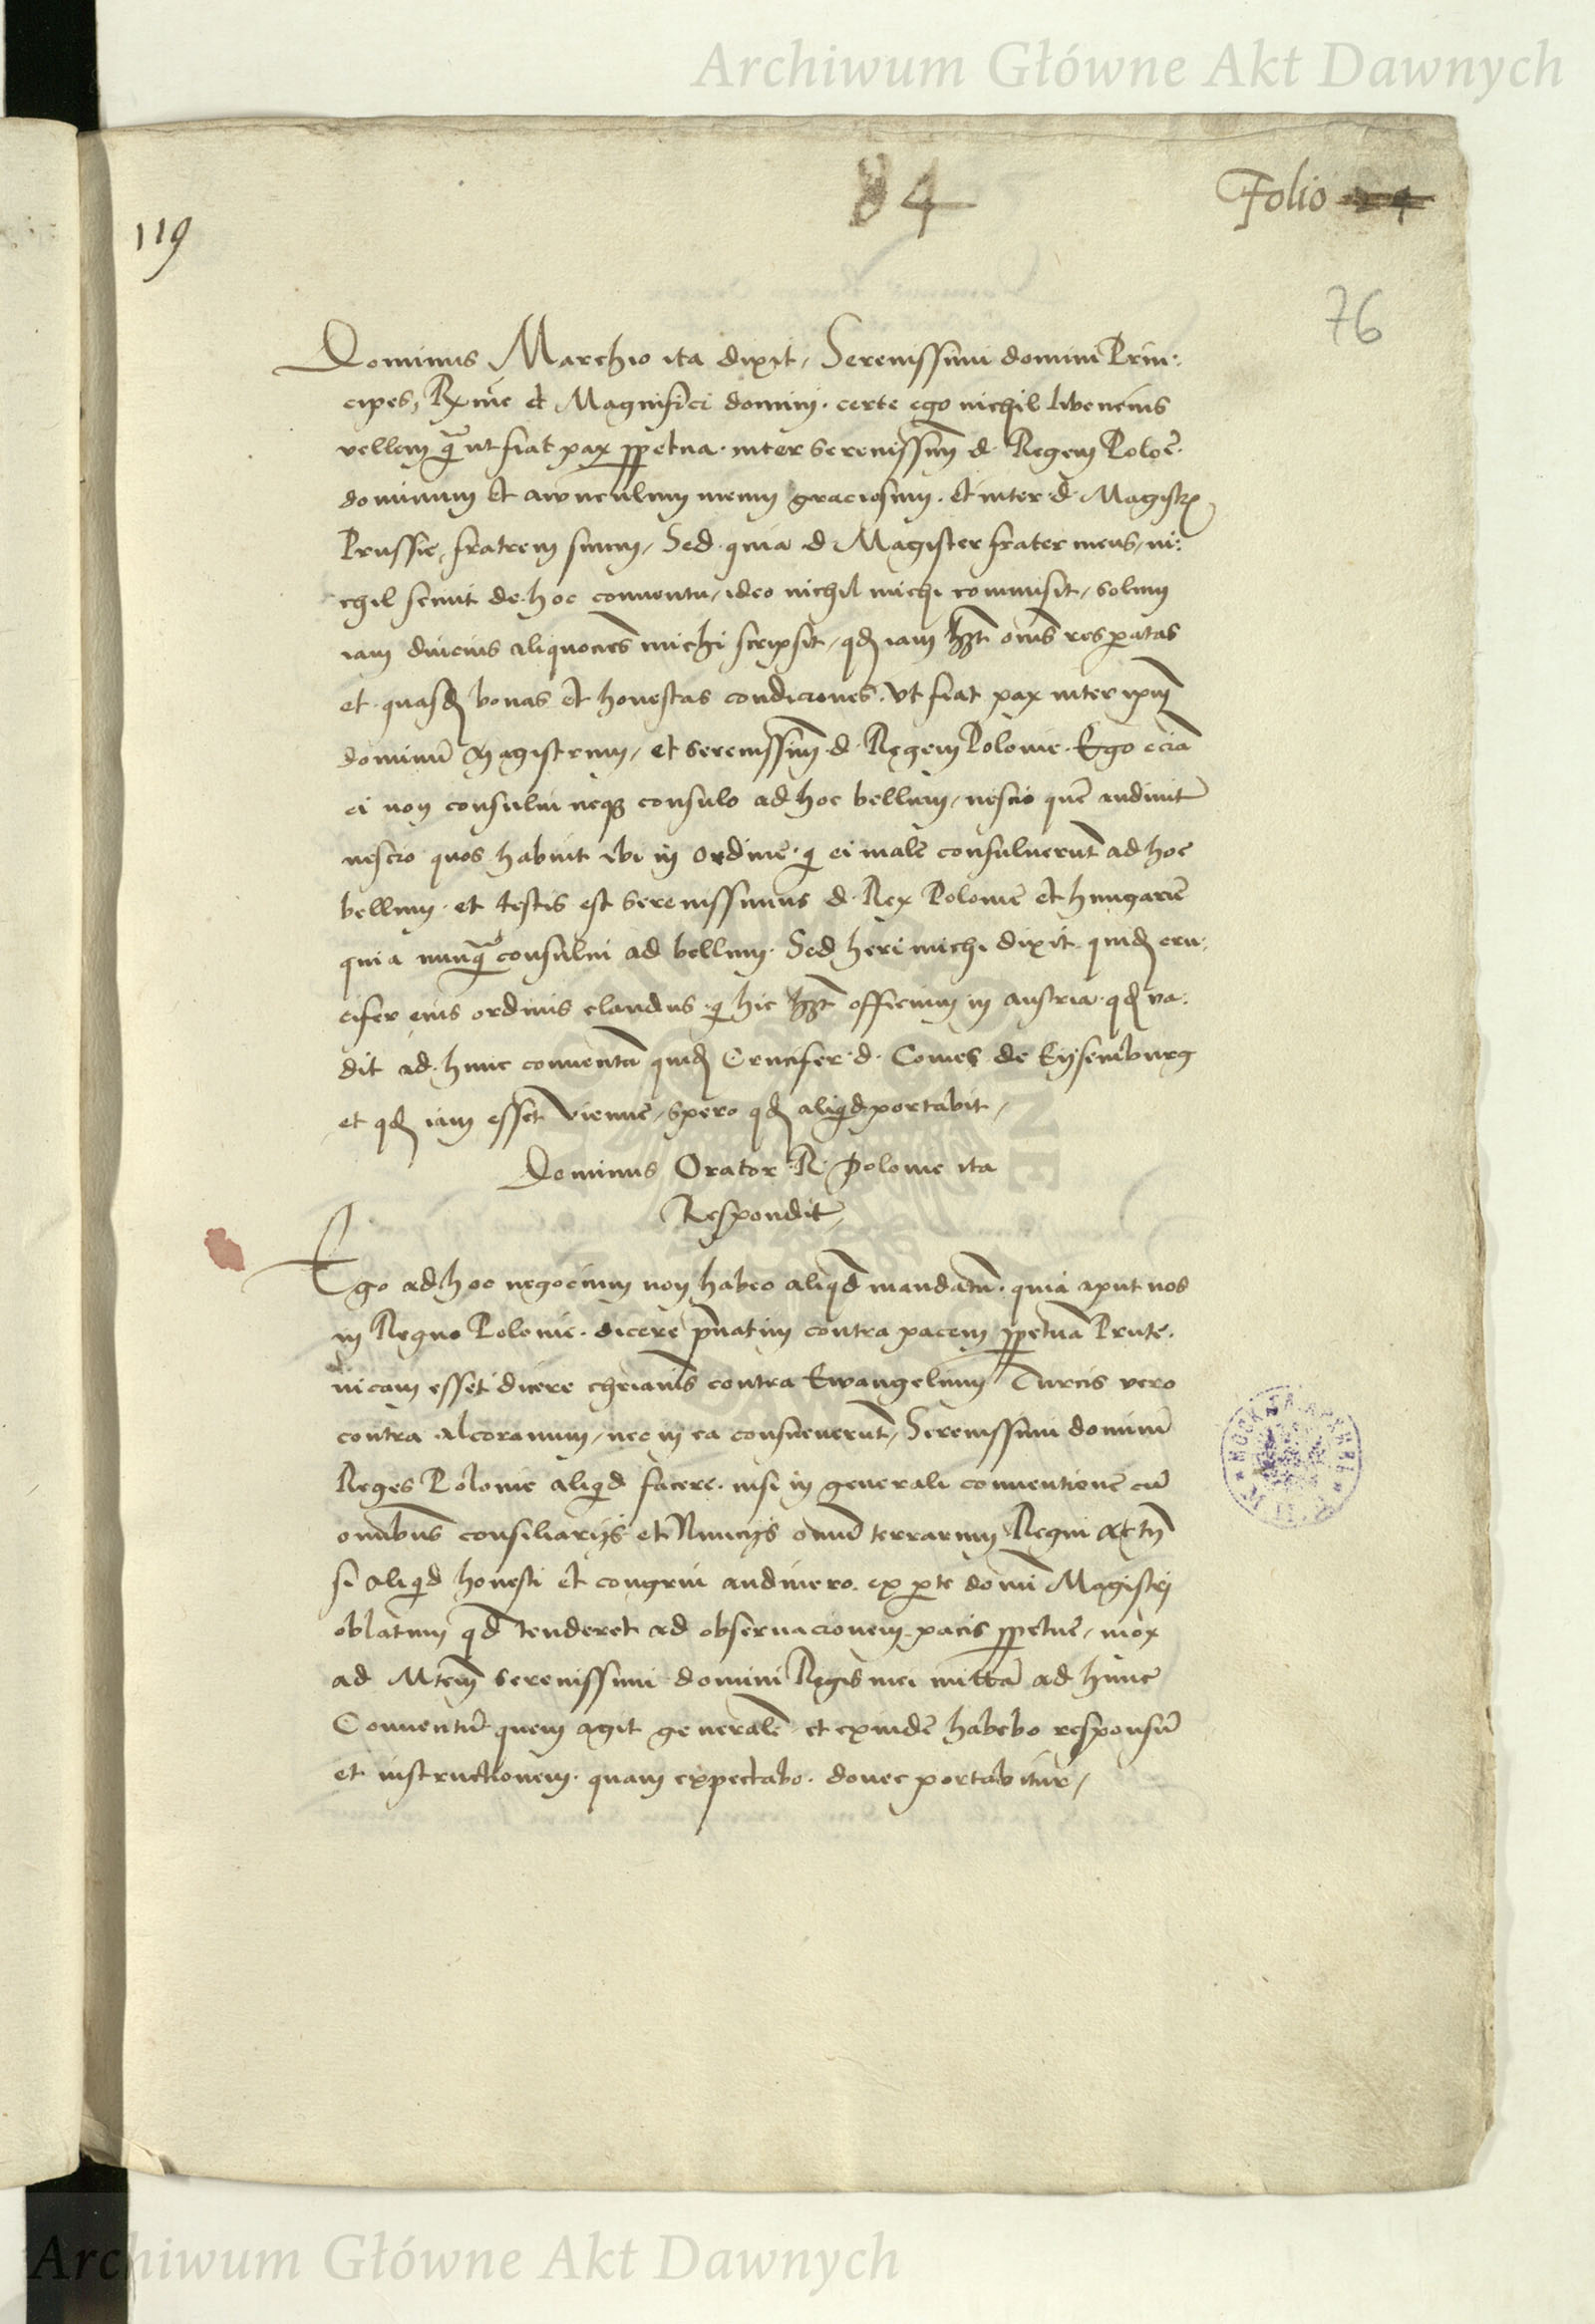 Archiwum Główne Akt Dawnych
84
Folio
119
76
Dominus Marchio ita dixit, Serenissimi domini Prin:
cipes, Rx̄me et Magnifici domini. certe ego nichil libencius
vellem q̄ ut fiat pax ꝑpetua. inter Serenissimū d. Regem Poloē.
dominum et avunculum meum graciosum. et inter d. Magistrū
Prussie, fratrem suum, Sed quia d Magister frater meus, ni:
chil scivit de hoc conventu, ideo nichil michi commisit, solum
iam diucius aliquocies michi scripsit, qd iam hꝫt om̄s res ꝑatas
et quasdā bonas et honestas condiciones. Ut fiat pax inter ipm̄
dominū Magistrum, et Serenissimū d. Regem Polonie. Ego eciā
ei non consului neqꝫ consulo ad hoc bellum, nescio quē audivit
nescio quos habuit ibi in Ordine. q̄ ei male consuluerūt ad hoc
bellum. et testis est Serenissimus d. Rex Polonie et hungarie
quia nunq̄ consului ad bellum. Sed heri michi dixit quidā cru:
cifer eius ordinis claudus. q̄ hic hꝫt officium in austria. qd va:
dit ad hunc conventū quidā Crucifer d. Comes de Eysemburg
et qd iam esset Vienne, spero qd aliqd portabit,
Dominus Orator R. Polonie ita
Respondit,
Ego ad hoc negocium non habeo aliqd mandatū. quia aput nos
in Regno Polonie. dicere p̄vatim contra pacem ꝑpetuā Prute.
nicam esset dicere chr̄ianis contra Ewangelium Turcis vero
contra Alcoranum, nec in ea consueuerūt, Serenissimi domini
Reges Polonie aliqd facere. nisi in generali conventione cū
omībus consiliariis et Nuncys omniū terrarum Regni attn̄
si aliqd honesti et congrui audivero. ex ꝑte domī Magistri
oblatum qd tenderet ad observacionem pacis ꝑpetue, mox
ad Mtem̄ Serenissimi domini Regis mei mittā ad hunc
Conventū quem agit generalē et exindē habebo responsū
et instructionem. quam expectabo. donec portabitur,
Archiwum Główne Akt Dawnych